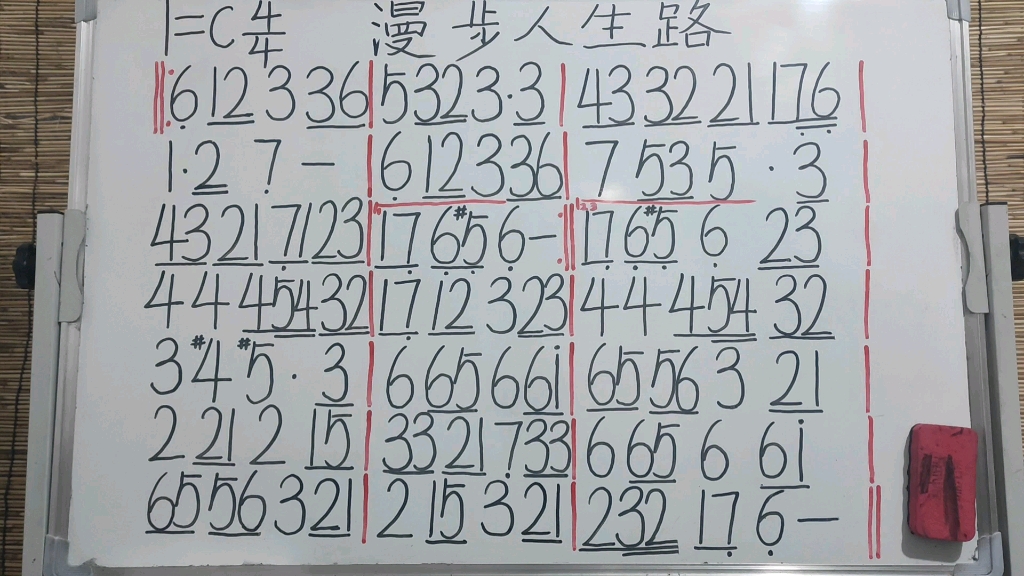 1=C 4/4 漫步人生路
6 12 3 36 | 532 3·3 | 43 32 21 176 |
1·2 7 — | 6 12 3 36 | 7 53 5 · 3
43 21 71 23 | 17 6#5 6 — | 17 6#5 6 23
4 4 454 32 | 17 12 3 23 | 4 4 454 32
3 #4 #5 · 3 | 6 65 6 61 | 65 56 3 21
2 21 2 15 | 33 21 7 33 | 6 65 6 61 |
65 56 3 21 | 2 15 3 21 | 232 17 6 — ||